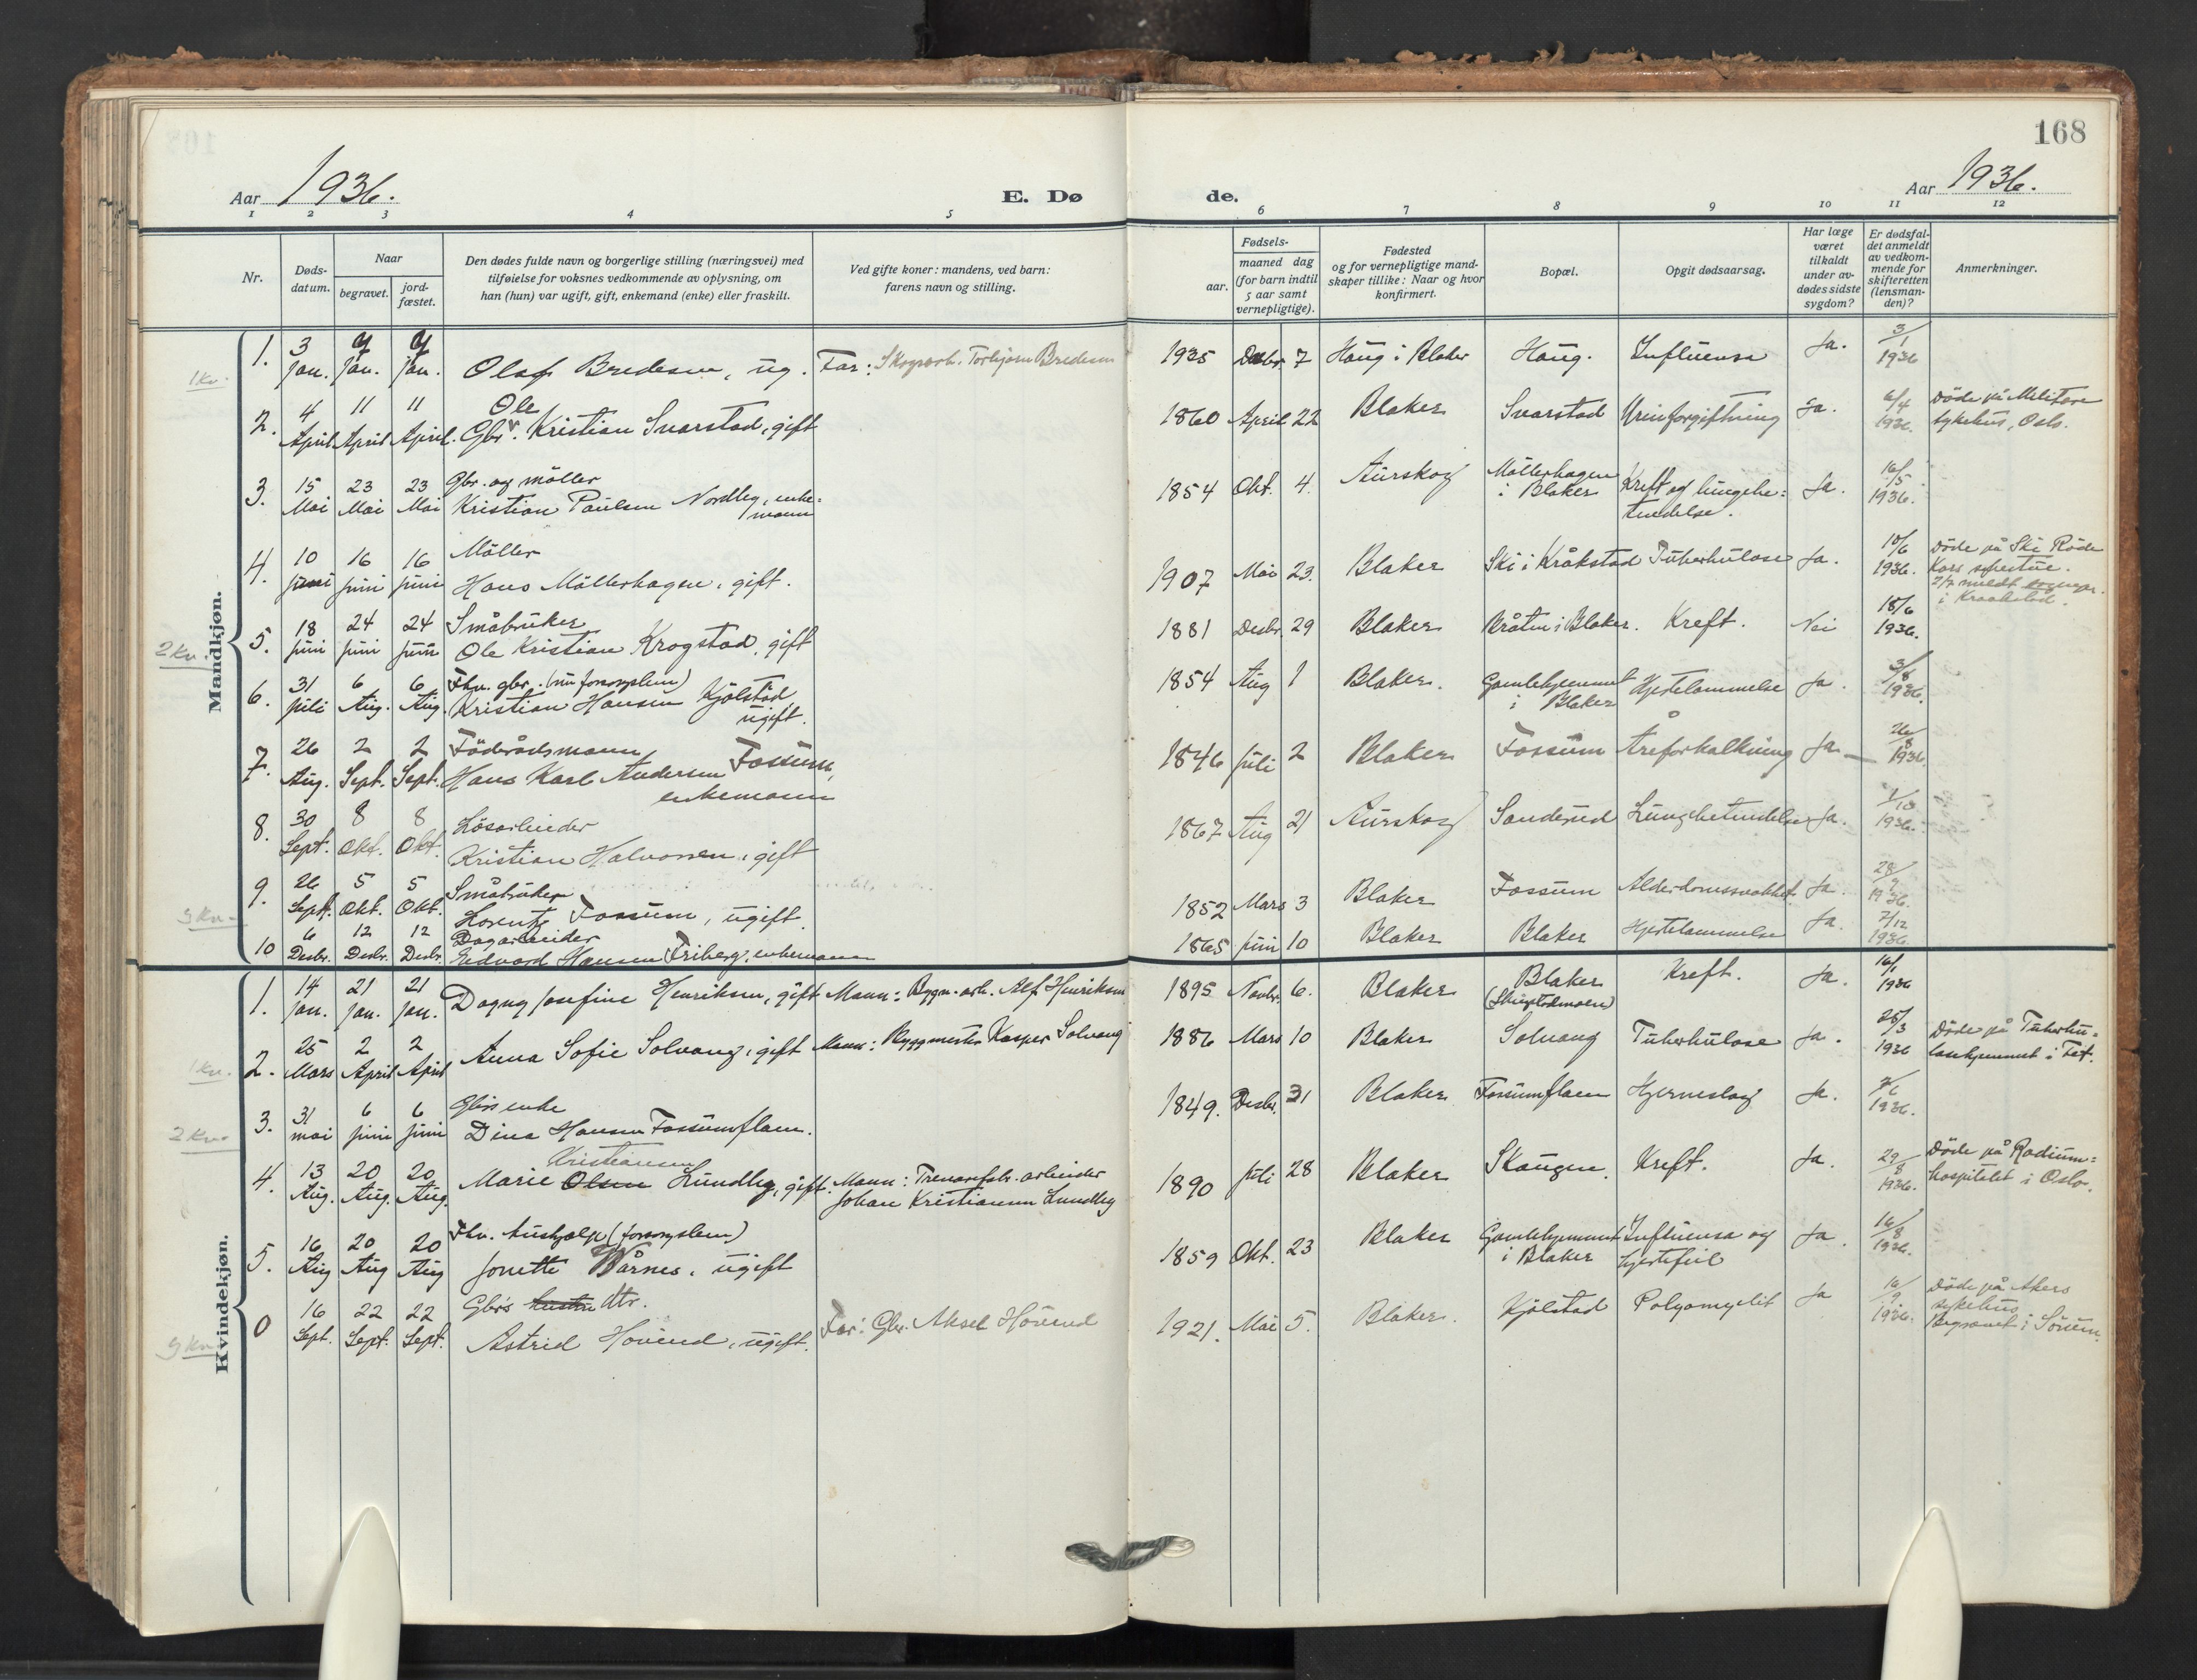 168
Aar 1936.
E. Dø
de.
Aar 1936.
1 2 3 4 5 6 7 8 9 10 11 12
Nr.
Døds-
datum.
Naar
begravet.
jord-
fæstet.
Den dødes fulde navn og borgerlige stilling (næringsvei) med
tilføielse for voksnes vedkommende av oplysning, om
han (hun) var ugift, gift, enkemand (enke) eller fraskilt.
Ved gifte koner: mandens, ved barn:
farens navn og stilling.
Fødsels-
aar.
maaned dag
(for barn indtil
5 aar samt
vernepligtige).
Fødested
og for vernepligtige mand-
skaper tillike: Naar og hvor
konfirmert.
Bopæl.
Opgit dødsaarsag.
Har læge
været
tilkaldt
under av-
dødes sidste
sygdom?
Er dødsfal-
det anmeldt
av vedkom-
mende for
skifteretten
(lensman-
den)?
Anmerkninger.
Mandkjøn.
1 Kv.
1. 3 Jan. 9 Jan. 9 Jan. Olaf Bredesen, ug. Far: Skogsarb. Torbjørn Bredesen 1935 Desbr. 7 Haug i Blaker Haug. Influensa Ja. 3/1 1936
2. 4 April 11 April 11 April. Gbr. Ole Kristian Svarstad, gift 1860 April 22 Blaker Svarstad Urinforgiftning Ja. 6/4 1936. Døde på Militære sykehus, Oslo.
3. 15 Mai 23 Mai 23 Mai Gbr. og møller
Kristian Paulsen Nordby, enke-
mann 1854 Okt. 4. Aurskog Møllerhagen i Blaker Kreft og lungebe-
tendelse. Ja. 16/5 1936.
4. 10 juni 16 juni 16 juni Møller
Hans Møllerhagen, gift. 1907 Mai 23. Blaker Ski i Kråkstad Tuberkulose Ja. 10/6 1936. Døde på Ski Røde Kors
i Kraakstad.
2 Kv.
5. 18 juni 24 juni 24 juni Småbruker
Ole Kristian Krogstad, gift 1881 Desbr. 29 Blaker Bråten i Blaker. Kreft. Nei 18/6 1936.
6. 31 juli 6 Aug. 6 Aug. Fhv. gbr. (nu forsorgslem)
Kristian Hansen Kjølstad
ugift. 1854 Aug 1 Blaker. Gamlehjemmet i Blaker Hjertelammelse Ja. 3/8 1936.
7. 26 Aug. 2 Sept. 2 Sept. Føderådsmann
Hans Karl Andersen Fossum,
enkemann 1846 juli 2 Blaker Fossum Åreforkalkning Ja 26/8 1936.
8. 30 Sept. 8 Okt. 8 Okt. Løsarbeider
Kristian Halvorsen, gift 1867 Aug 21 Aurskog Sanderud Lungebetendelse Ja. 1/10 1936.
3 Kv.
9. 26 Sept. 5 Okt. 5 Okt. Småbruker
Lorentz Fossum, ugift. 1852 Mars 3 Blaker Fossum Alderdomssvakhet Ja. 28/9 1936.
10 6 Desbr. 12 Desbr. 12 Desbr. Dagarbeider
Edvard Hansen Friberg, enkemann 1865 juni 10 Blaker Blaker Hjertelammelse Ja. 7/12 1936.
Kvindekjøn.
1. 14 Jan. 21 Jan. 21 Jan. Dagny Josefine Henriksen, gift Mann: Bygn. arb. Alf Henriksen 1895 Novbr. 6. Blaker Blaker Kreft. Ja. 16/1 1936
1 Kv.
2. 25 Mars 2 April 2 April Anna Sofie Solvang, gift Mann: Byggmester Kasper Solvang 1886 Mars 10 Blaker Solvang Tuberkulose Ja. 25/3 1936 Døde på Tuberku-
losehjemmet i Fet.
2 Kv.
3. 31 mai 6 juni 6 juni Gbrs enke
Dina Hansen Fossumflaen. 1849. Desbr. 31 Blaker Fossumflaen Hjerneslag Ja. 1936.
4. 13 Aug. 20 Aug. 20 Aug. Kristiansen
Marie Olsen Lundby, gift. Mann: Trevarefabr. arbeider
Johan Kristiansen Lundby 1890 juli 28 Blaker Skaugen. Kreft. Ja. 29/8 1936. Døde på Radium-
hospitalet i Oslo.
5. 16 Aug 20 Aug 20 Aug Fhv. hushjelp (forsorgslem)
Jonette Wårnes, ugift 1859 Okt. 23 Blaker Gamlehjemmet i Blaker Influensa og
hjertefeil Ja. 16/8 1936.
3 Kv.
0 16 Sept. 22 Sept. 22 Sept. Gbrs hustru dtr.
Astrid Hovind, ugift. Far: Gbr. Aksel Hovind 1921. Mai 5. Blaker. Kjølstad Polyomyelit Ja 16/9 1936. Døde på Akers
sykehus
Begravet i Sørum.